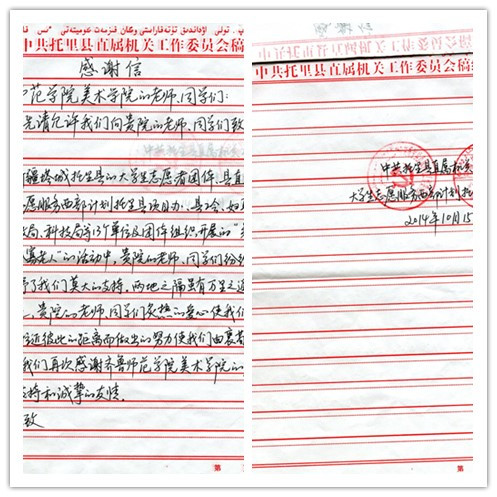 中共托里县直属机关工作委员会稿
感谢信
范学院美术学院的老师、同学们:
先请允许我们向贵院的老师、同学们致
疆塔城托里县的大学生志愿者团体、县直
愿服务西部计划托里县项目办、县工会、如
局、科技局等13个单位及团体组织开展的"
寡老人"的活动中,贵院的老师、同学们纷纷
了我们莫大的支持,两地之隔虽有万里之遥
,贵院的老师、同学们炙热的爱心使我们
近彼此的距离而做出的努力使我们由衷着
我们再次感谢齐鲁师范学院美术学院的
持和诚挚的友情。
致
第
中共托里县直属机关工作委员会稿纸
中共托里县直属机关
大学生志愿服务西部计划托
2014年10月15
第